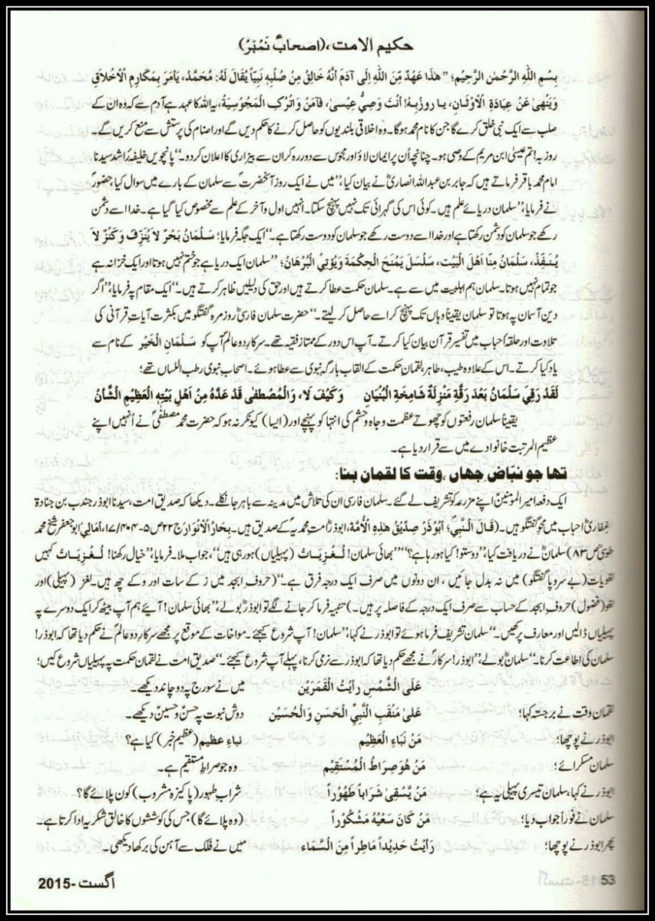 حکیم الامت، (اصحابؓ نمبر)
بِسْمِ اللهِ الرَّحْمٰنِ الرَّحِیْمِ؛ "هٰذَا عَهْدٌ مِّنَ اللهِ إِلَى آدَمَ أَنَّهُ خَالِقٌ مِنْ صُلْبِهِ نَبِيًّا يُقَالُ لَهُ: مُحَمَّدٌ، يَأْمُرُ بِمَكَارِمِ الْأَخْلَاقِ
وَيَنْهٰى عَنْ عِبَادَةِ الْأَوْثَانِ، یا روزبہ! أَنْتَ وَصِيُّ عِيسىٰ، فَآمِنْ وَاتْرُكِ الْمَجُوْسِيَّةَ، یہ اللہ کا عہد ہے آدم سے کہ وہ ان کے
صلب سے ایک نبی خلق کرے گا جن کا نام محمد ہوگا۔ وہ اخلاقی بلندیوں کو حاصل کرنے کا حکم دیں گے اور اصنام کی پرستش سے منع کریں گے۔
روز بہ! تم عیسیٰ ابن مریم کے وصی ہو۔ چنانچہ اُن پر ایمان لاؤ اور مجوس سے دور رہ کر ان سے بیزاری کا اعلان کردو۔" پانچویں خلیفۂ راشد سیدنا
امام محمد باقر فرماتے ہیں کہ جابر بن عبداللہ انصاریؓ نے بیان کیا؛ "میں نے ایک روز آنحضرتؐ سے سلمان کے بارے میں سوال کیا، حضورؐ
نے فرمایا؛ "سلمان دریائے علم ہیں۔ کوئی اس کی گہرائی تک نہیں پہنچ سکتا۔ انہیں اول و آخر کے علم سے مخصوص کیا گیا ہے۔ خدا اسے دشمن
رکھے جو سلمان کو دشمن رکھتا ہے اور خدا اسے دوست رکھے جو سلمان کو دوست رکھتا ہے۔" ایک جگہ فرمایا؛ سَلْمَانُ بَحْرٌ لَا يُنْزَفُ وَكَنْزٌ لَا
يُنْفَدُ، سَلْمَانُ مِنَّا أَهْلَ الْبَيْتِ، سَلْسَلٌ يَمْنَحُ الْحِكْمَةَ وَيُؤْتِي الْبُرْهَانَ؛ "سلمان ایک دریا ہے جو ختم نہیں ہوتا اور ایک خزانہ ہے
جو تمام نہیں ہوتا۔ سلمان ہم اہلبیت میں سے ہے۔ سلمان حکمت عطا کرتے ہیں اور حق کی دلیلیں ظاہر کرتے ہیں۔" ایک مقام پہ فرمایا؛ "اگر
دین آسمان پہ ہوتا تو سلمان یقیناً وہاں تک پہنچ کر اسے حاصل کر لیتے۔" حضرت سلمان فارسیؓ روزمرہ گفتگو میں بکثرت آیات قرآنی کی
تلاوت اور حلقۂ احباب میں تفسیر قرآن بیان کیا کرتے۔ آپ اس دور کے ممتاز فقیہ تھے۔ سرکار دو عالمؐ آپ کو سَلْمَانُ الْخَيْرِ کے نام سے
یاد کیا کرتے۔ اس کے علاوہ طیب، طاہر لقمان حکمت کے القاب بارگہ نبوی سے عطا ہوئے۔ اصحاب نبوی رطب اللسان تھے؛
لَقَدْ رَقِيَ سَلْمَانُ بَعْدَ رَقَّةٍ مَنْزِلَةً شَامِخَةَ الْبُنْيَانِ وَكَيْفَ لَا، وَالْمُصْطَفٰى قَدْ عَدَّهُ مِنْ أَهْلِ بَيْتِهِ الْعَظِيْمِ الشَّانْ
یقیناً سلمان رفعتوں کو چھوتے عظمت و جاہ و حشم کی انتہا کو پہنچے اور (ایسا) کیونکر نہ ہو کہ حضرت محمد مصطفیٰؐ نے اُنہیں اپنے
عظیم المرتبت خانوادے میں سے قرار دیا ہے۔
تھا جو نبّاضِ جہاں، وقت کا لقمان بنا:
ایک دفعہ امیر المومنین اپنے مزرعہ کو تشریف لے گئے۔ سلمان فارسی ان کی تلاش میں مدینہ سے باہر جا نکلے۔ دیکھا کہ صدیق امت، سیدنا ابوذر جندب بن جنادۃ
غفاریؓ احباب میں محوِ گفتگو ہیں۔ (قَالَ النَّبِيُّ؛ أَبُوْذَرٍّ صِدِّيْقُ هٰذِهِ الْأُمَّةِ، ابوذرؓ امت محمدیہ کے صدیق ہیں۔ بحار الانوار ج ۲۲ ص ۴۰۵-۱۷/۴۰۴، امالی؛ ابوجعفر شیخ محمد
طوسی ص ۸۳) سلمانؓ نے دریافت کیا؛ "دوستو! کیا ہو رہا ہے؟" "بھائی سلمان! لُغْزِیات (پہیلیاں) ہو رہی ہیں"، جواب ملا۔ فرمایا؛ "خیال رکھنا! لُغْزِیات کہیں
لغویات (بے سروپا گفتگو) میں نہ بدل جائیں، ان دونوں میں صرف ایک درجہ فرق ہے۔" (حروف ابجد میں ز کے سات اور و کے چھ ہیں۔ لغز (پہیلی) اور
لغو (فضول) حروف ابجد کے حساب سے صرف ایک درجے کے فاصلہ پر ہیں۔) تنبیہ فرما کر جانے لگے تو ابوذرؓ بولے؛ "بھائی سلمان! آیئے ہم آپ بیٹھ کر ایک دوسرے پہ
پہیلیاں ڈالیں اور معارف پرکھیں۔" سلمان تشریف فرما ہوئے تو ابوذر نے کہا؛ "سلمان! آپ شروع کیجئے۔ مواخات کے موقع پر مجھے سرکار دو عالمؐ نے حکم دیا تھا کہ ابوذر!
سلمان کی اطاعت کرنا۔" سلمانؓ بولے؛ "ابوذر! سرکار نے مجھے حکم دیا تھا کہ ابوذر سے نرمی کرنا، پہلے آپ شروع کیجئے۔" صدیق امت نے لقمان حکمت پہ پہیلیاں شروع کیں؛
عَلَى الشَّمْسِ رَأَيْتُ الْقَمَرَيْنِ میں نے سورج پہ دو چاند دیکھے۔
لقمان وقت نے برجستہ کہا؛ عَلَىٰ مَنْقَبِ النَّبِيِّ الْحَسَنِ وَالْحُسَيْنِ دوش نبوت پہ حسنؓ و حسینؓ دیکھے۔
ابوذر نے پوچھا؛ مَنْ نَبَاءِ الْعَظِيْمِ نباءِ عظیم (عظیم خبر) کیا ہے؟
سلمان مسکرائے؛ مَنْ هُوَ صِرَاطُ الْمُسْتَقِيْمِ وہ جو صراط مستقیم ہے۔
ابوذر نے کہا، سلمان تیسری پہیلی یہ ہے؛ مَنْ يُسْقىٰ شَرَاباً طَهُوْراً شراب طہور (پاکیزہ مشروب) کون پلائے گا؟
سلمان نے فوراً جواب دیا؛ مَنْ كَانَ سَعْيُهُ مَشْكُوْراً (وہ پلائے گا) جس کی کوششوں کا خالق شکریہ ادا کرتا ہے۔
پھر ابوذر نے پوچھا؛ رَأَيْتُ حَدِيْداً مَاطِراً مِنَ السَّمَاءِ میں نے فلک سے آہن کی برکھا دیکھی۔
اگست -2015
53